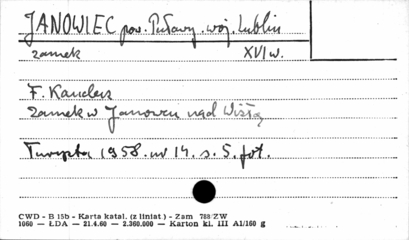 JANOWIEC pow. Puławy, woj. Lublin
zamek XVI w.
F. Kanclerz
zamek w Janowcu nad Wisłą
Turysta 1958. nr 14. s. 5. fot.
CWD - B 15b - Karta katal. (z liniat) - Zam 788/ZW
1060 — ŁDA — 21.4.60 — 2.360.000 — Karton kl. III A1/160 g